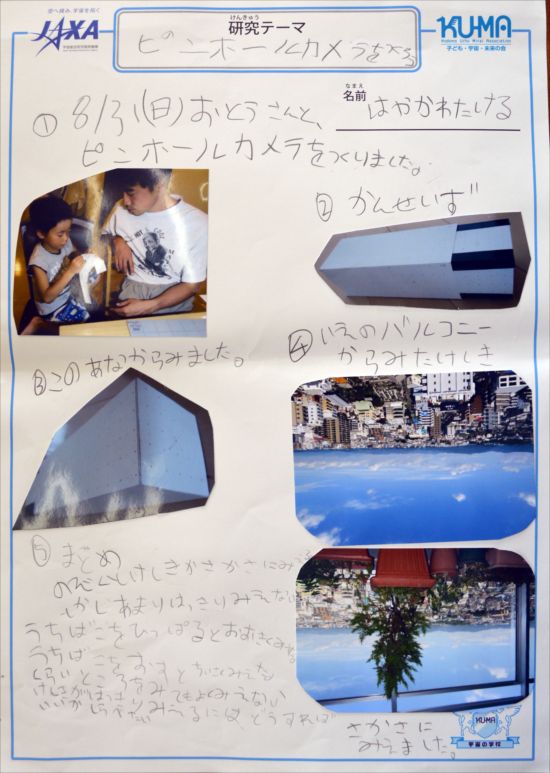 空へ挑み、宇宙を拓く
JAXA
けんきゅう
研究テーマ
ピンホールカメラをつくる
KUMA
Kodomo Uchu Mirai Association
子ども・宇宙・未来の会
なまえ
名前 はやかわたける
① 8/31(日)おとうさんと、
ピンホールカメラをつくりました。
② かんせいず
③このあなからみました。
④いえのバルコニー
からみたけしき
⑤ まとめ
のぞくとけしきがさかさにみえる
しかしあまりはっきりみえない
うちばこをひっぱるとおおきくみえる
うちばこをおすとちいさくみえた
くらいところをみてもよくみえない
けしきがはっきりみえるにはどうすれば
いいかしらべたい
さかさに
みえました。
KUMA
宇宙の学校